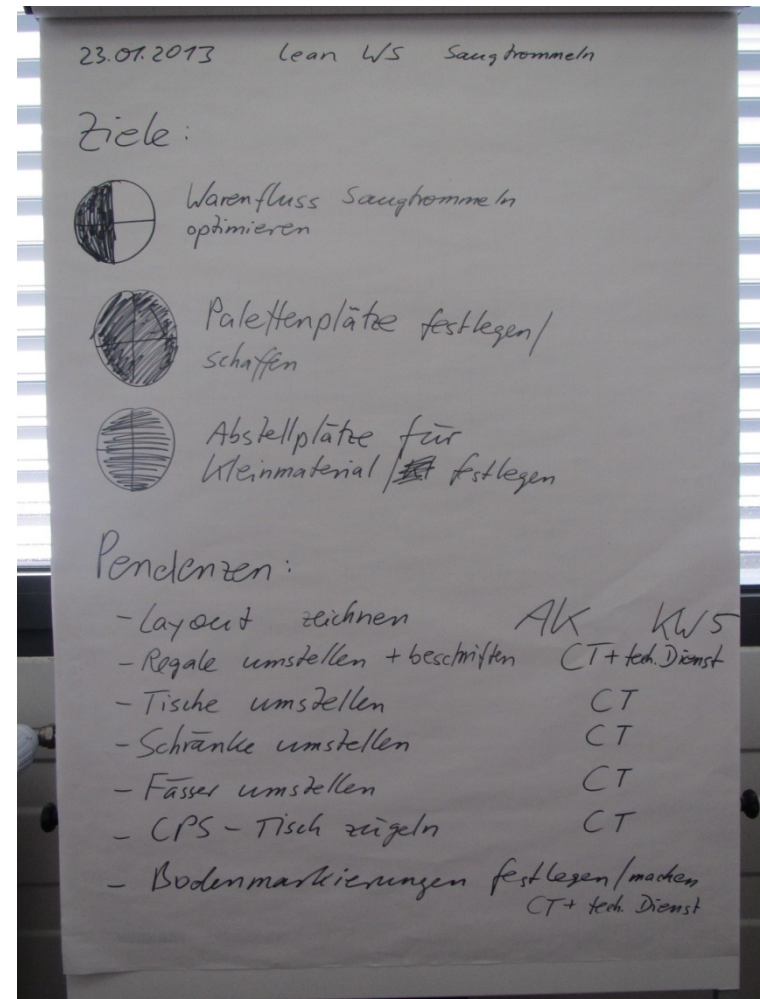 23.01.2013 Lean WS Saugtrommeln
Ziele:
Warenfluss Saugtrommeln
optimieren
Palettenplätze festlegen/
schaffen
Abstellplätze für
Kleinmaterial / festlegen
Pendenzen:
- Layout zeichnen AK KW5
- Regale umstellen + beschriften CT + tech. Dienst
- Tische umstellen CT
- Schränke umstellen CT
- Fässer umstellen CT
- CPS - Tisch zügeln CT
- Bodenmarkierungen festlegen/machen
CT + tech. Dienst